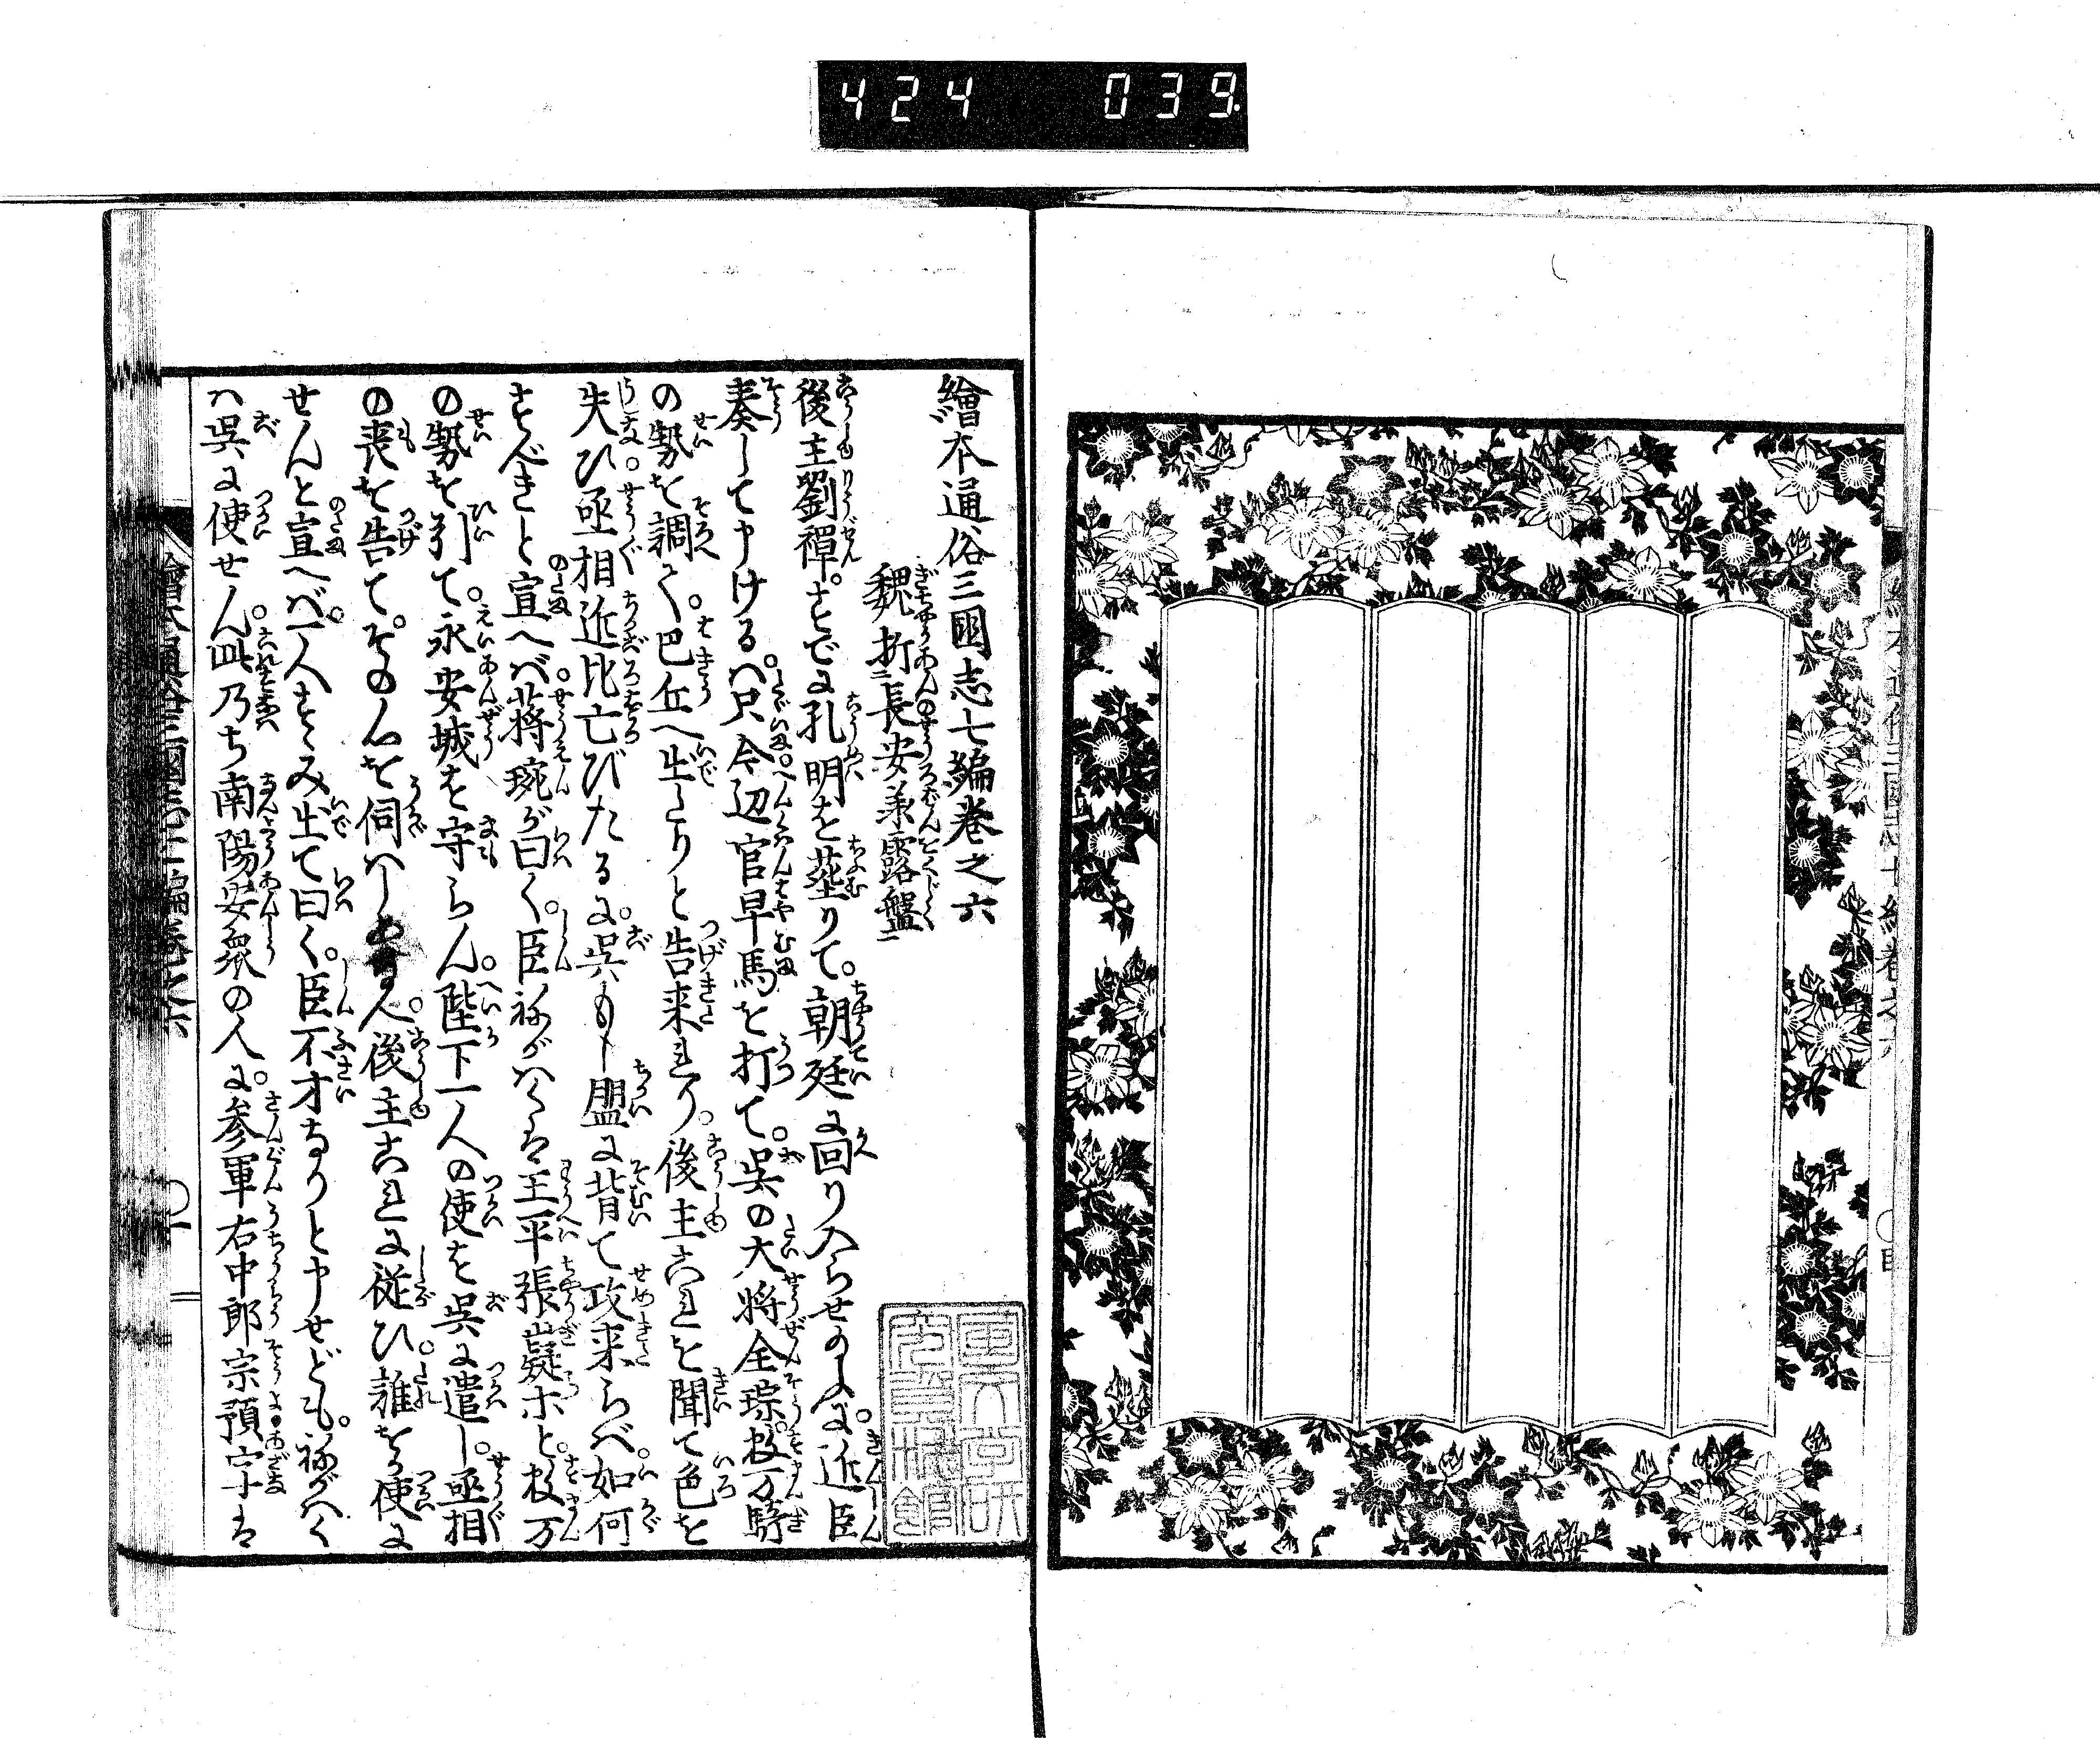 424 039
繪本通俗三國志七編巻之六
魏折長安承露盤
後主劉禅。すでに孔明を塟りて。朝廷に回り入らせ給へば。近臣
奏して申けるハ。只今辺官早馬を打て。呉の大将全琮。数万騎
の勢を調へ。巴丘へ出たりと告来れり。後主これを聞て色を
失ひ。丞相近比亡びたるに。呉もし盟に背て攻来らバ。如何
すべきと宣へバ。蒋琬が曰く。臣ねがハくは王平張嶷ホと。数万
の勢を引て。永安城を守らん。陛下一人の使を呉に遣し。丞相
の喪を告て。その心を伺ハしめ給へ。後主これに従ひ。誰をか使に
せんと宣へバ。一人すゝみ出て曰く。臣不才なりと申せども。ねがハく
ハ呉に使せん。此乃ち南陽安衆の人に。参軍右中郎宗預字は
繪本通俗三國志七編巻之六